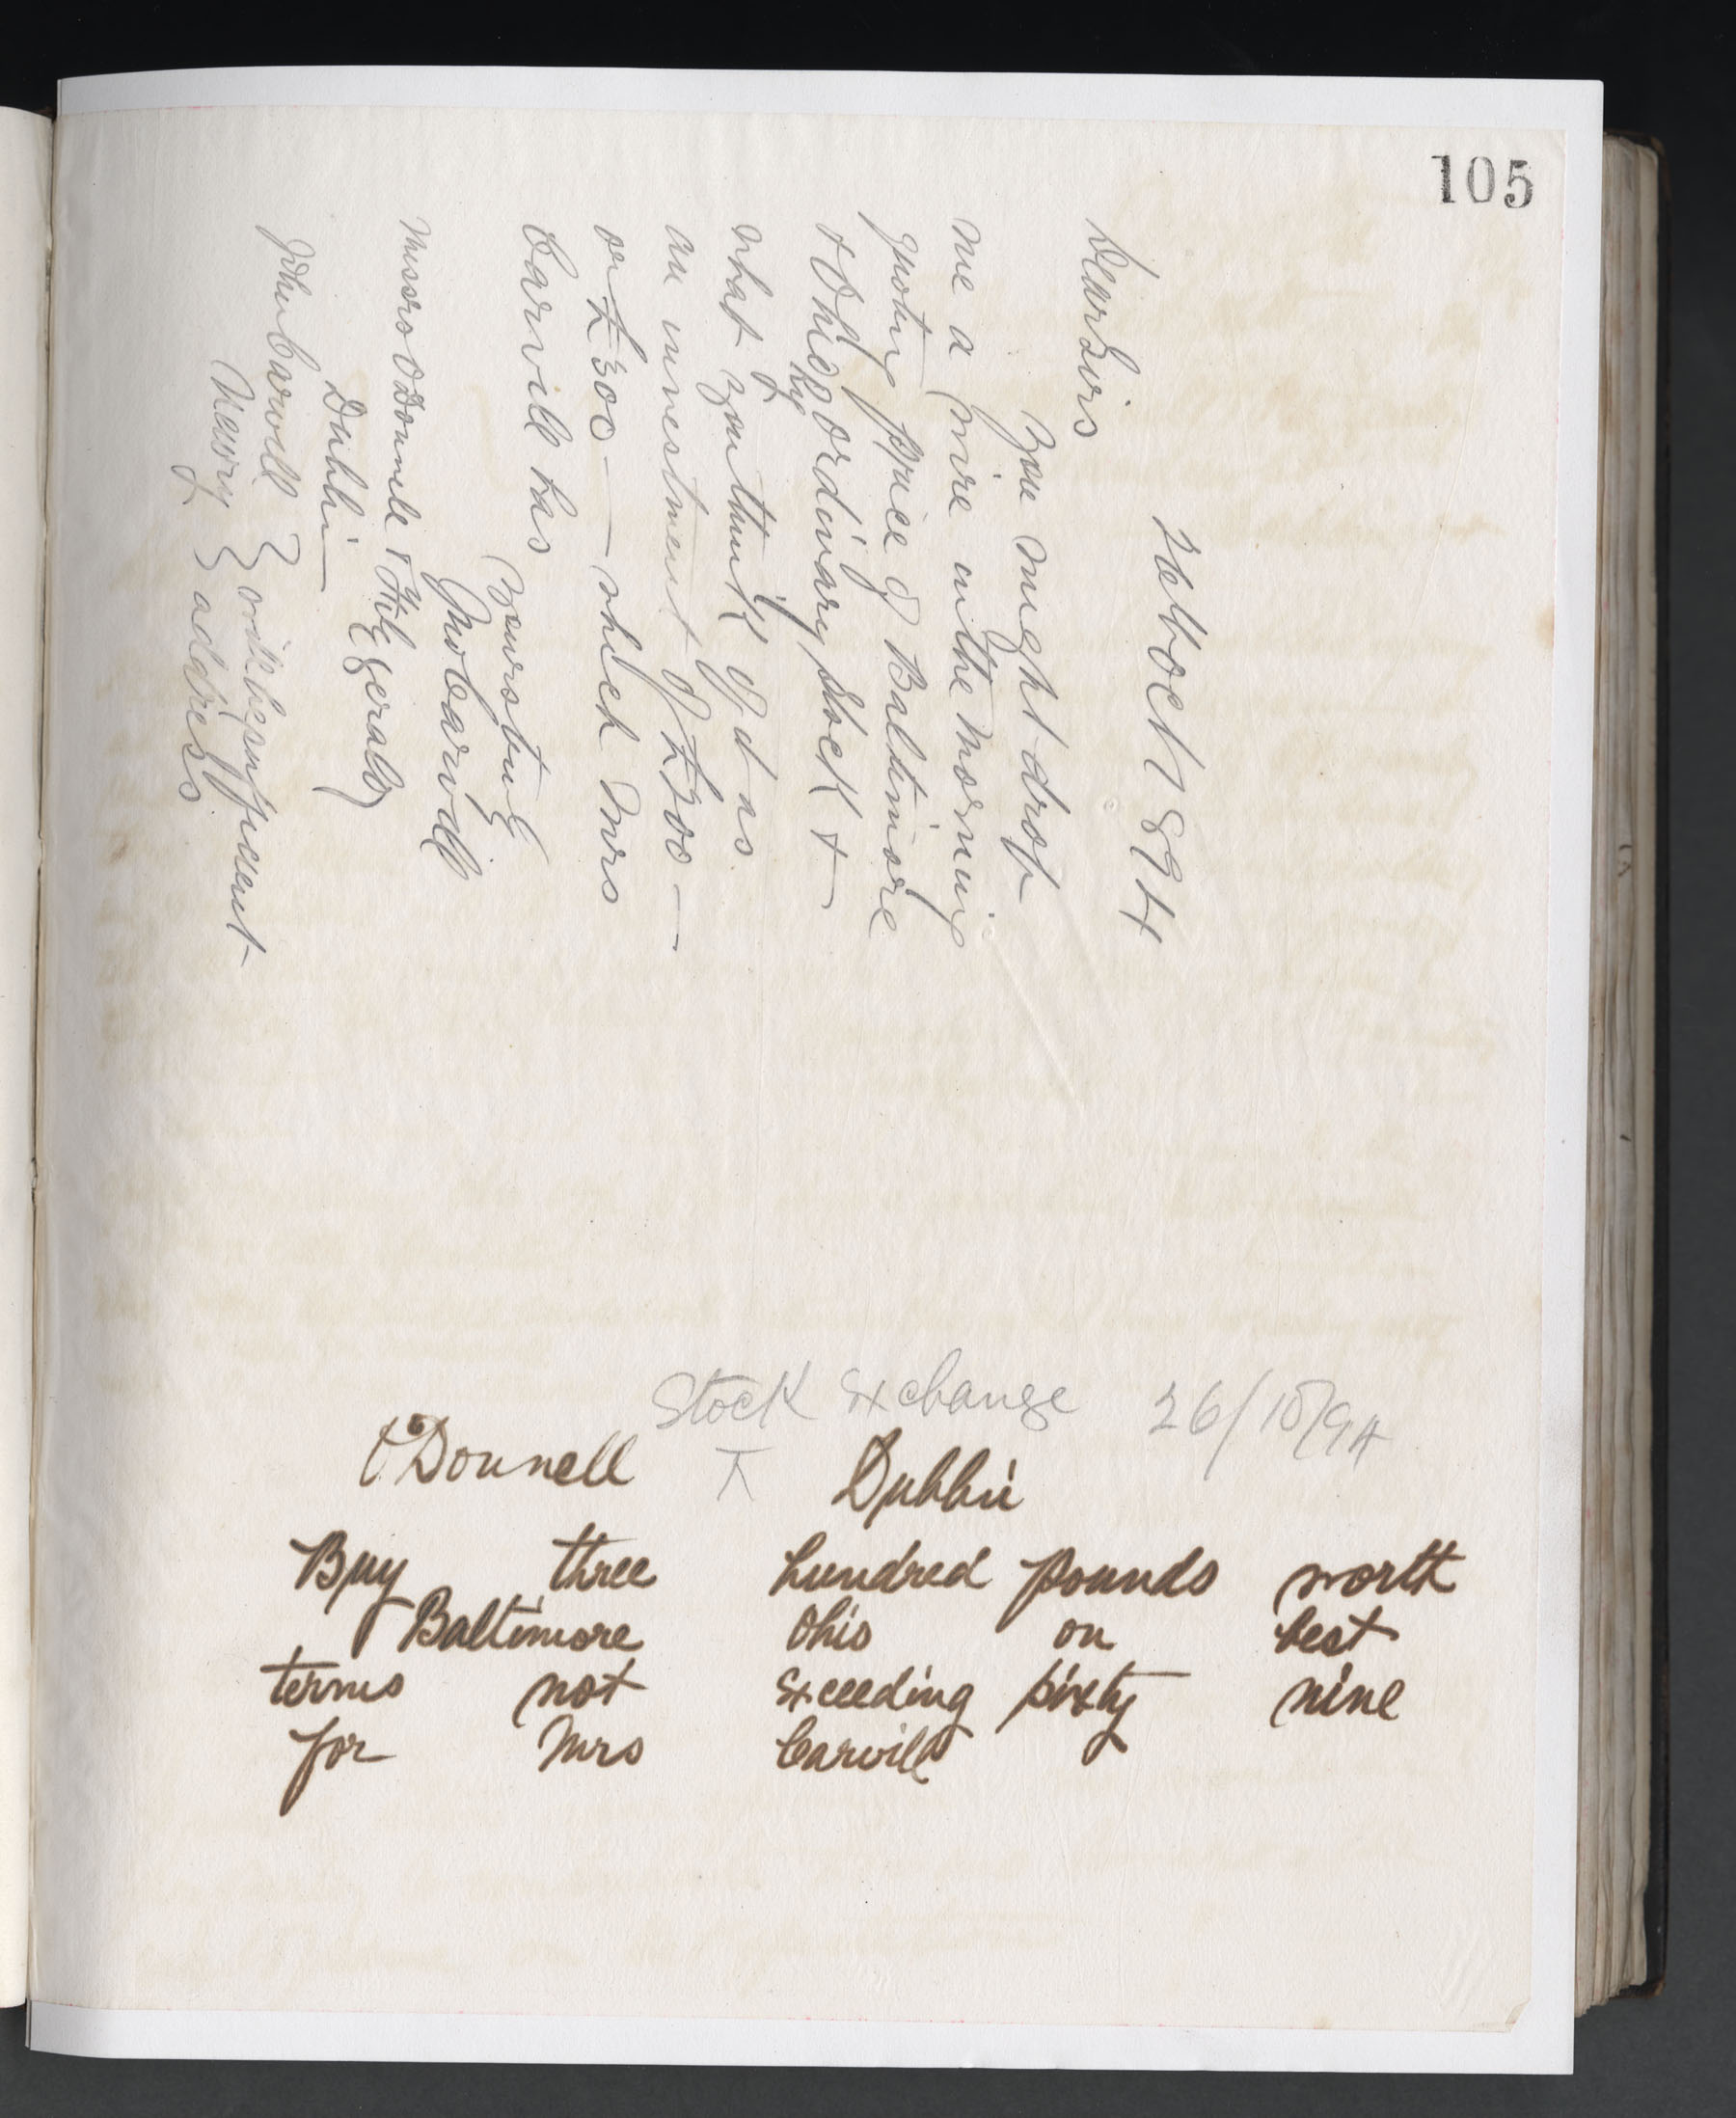 105
26th Oct 1894
Dear Sirs
You might drop
me a wire in the morning
quoting price of Baltimore
& Ohio Ry ordinary Stock &
what you think of it as
an investment of £200 —
or £300 — which Mrs
Carvill has
Yours truly
Jno Carvill
Messrs O'Donnell & Fitzgerald
Dublin
John Carvill } will be sufficient
Newry } address
Stock Exchange 26/10/94
O'Donnell Dublin
Buy three hundred pounds worth
Baltimore Ohio on best
terms not exceeding sixty nine
for Mrs Carvill